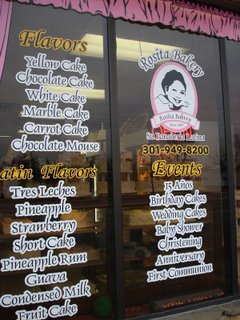 Flavors
Yellow Cake
Chocolate Cake
White Cake
Marble Cake
Carrot Cake
Chocolate Mouse
atin Flavors
Tres Leches
Pineapple
Strawberry
Short Cake
Pineapple Rum
Guava
Condensed Milk
Fruit Cake
Rosita Bakery
Rosita Bakery
Su Panaderia Latina
301-949-8200
Events
15 Años
Birthday Cakes
Wedding Cakes
Baby Shower
Christening
Anniversary
First Communion